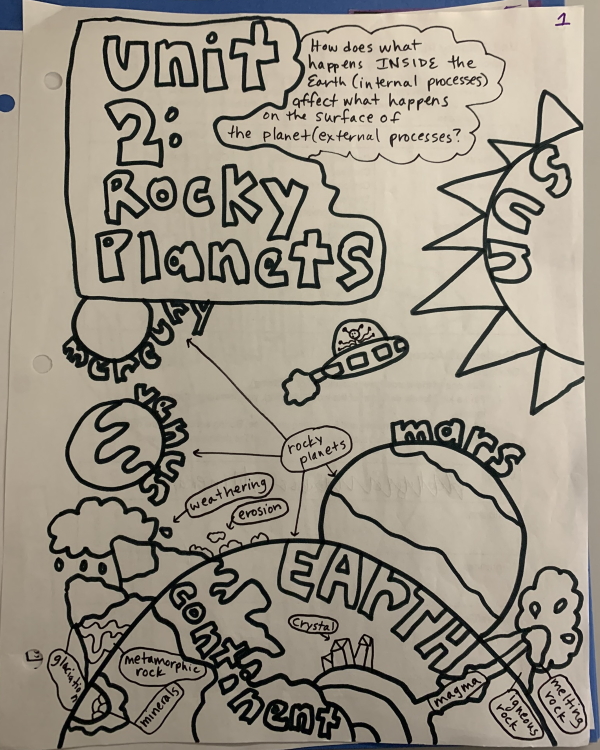 1
Unit
2:
Rocky
Planets
How does what
happens INSIDE the
Earth (internal processes)
affect what happens
on the surface of
the planet (external processes?
SUN
mercury
venus
rocky
planets
mars
weathering
erosion
EArTH
continent
Crystal
metamorphic
rock
minerals
glaciation
magma
igneous
rock
melting
rock